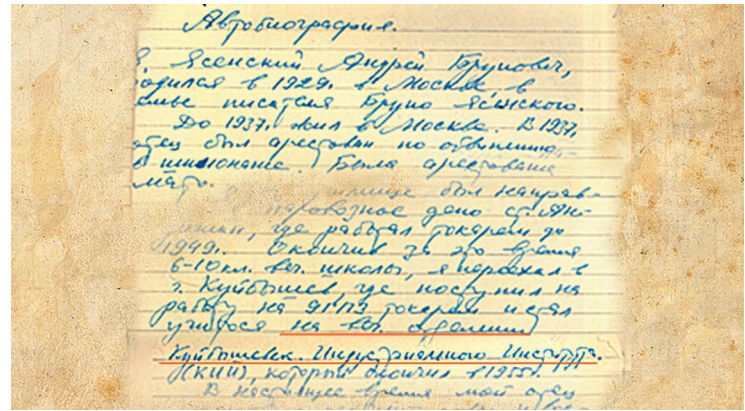 Автобиография.
Я, Ясенский Андрей Брунович,
родился в 1929г. в Москве, в
семье писателя Бруно Ясенского.
До 1937г. жил в Москве. В 1937г.
отец был арестован по обвинению
в шпионаже. Была арестована
мать.
был направ-
паровозное депо ст.
где работал токарем до
1949г. Окончив за это время
6-10 кл. веч. школы, я переехал в
г. Куйбышев, где поступил на
работу на 9ГПЗ токарем и стал
учиться на веч. отделении
Куйбышевск. Индустриального Института.
(КИИ), который окончил в 1955г.
В настоящее время мой отец